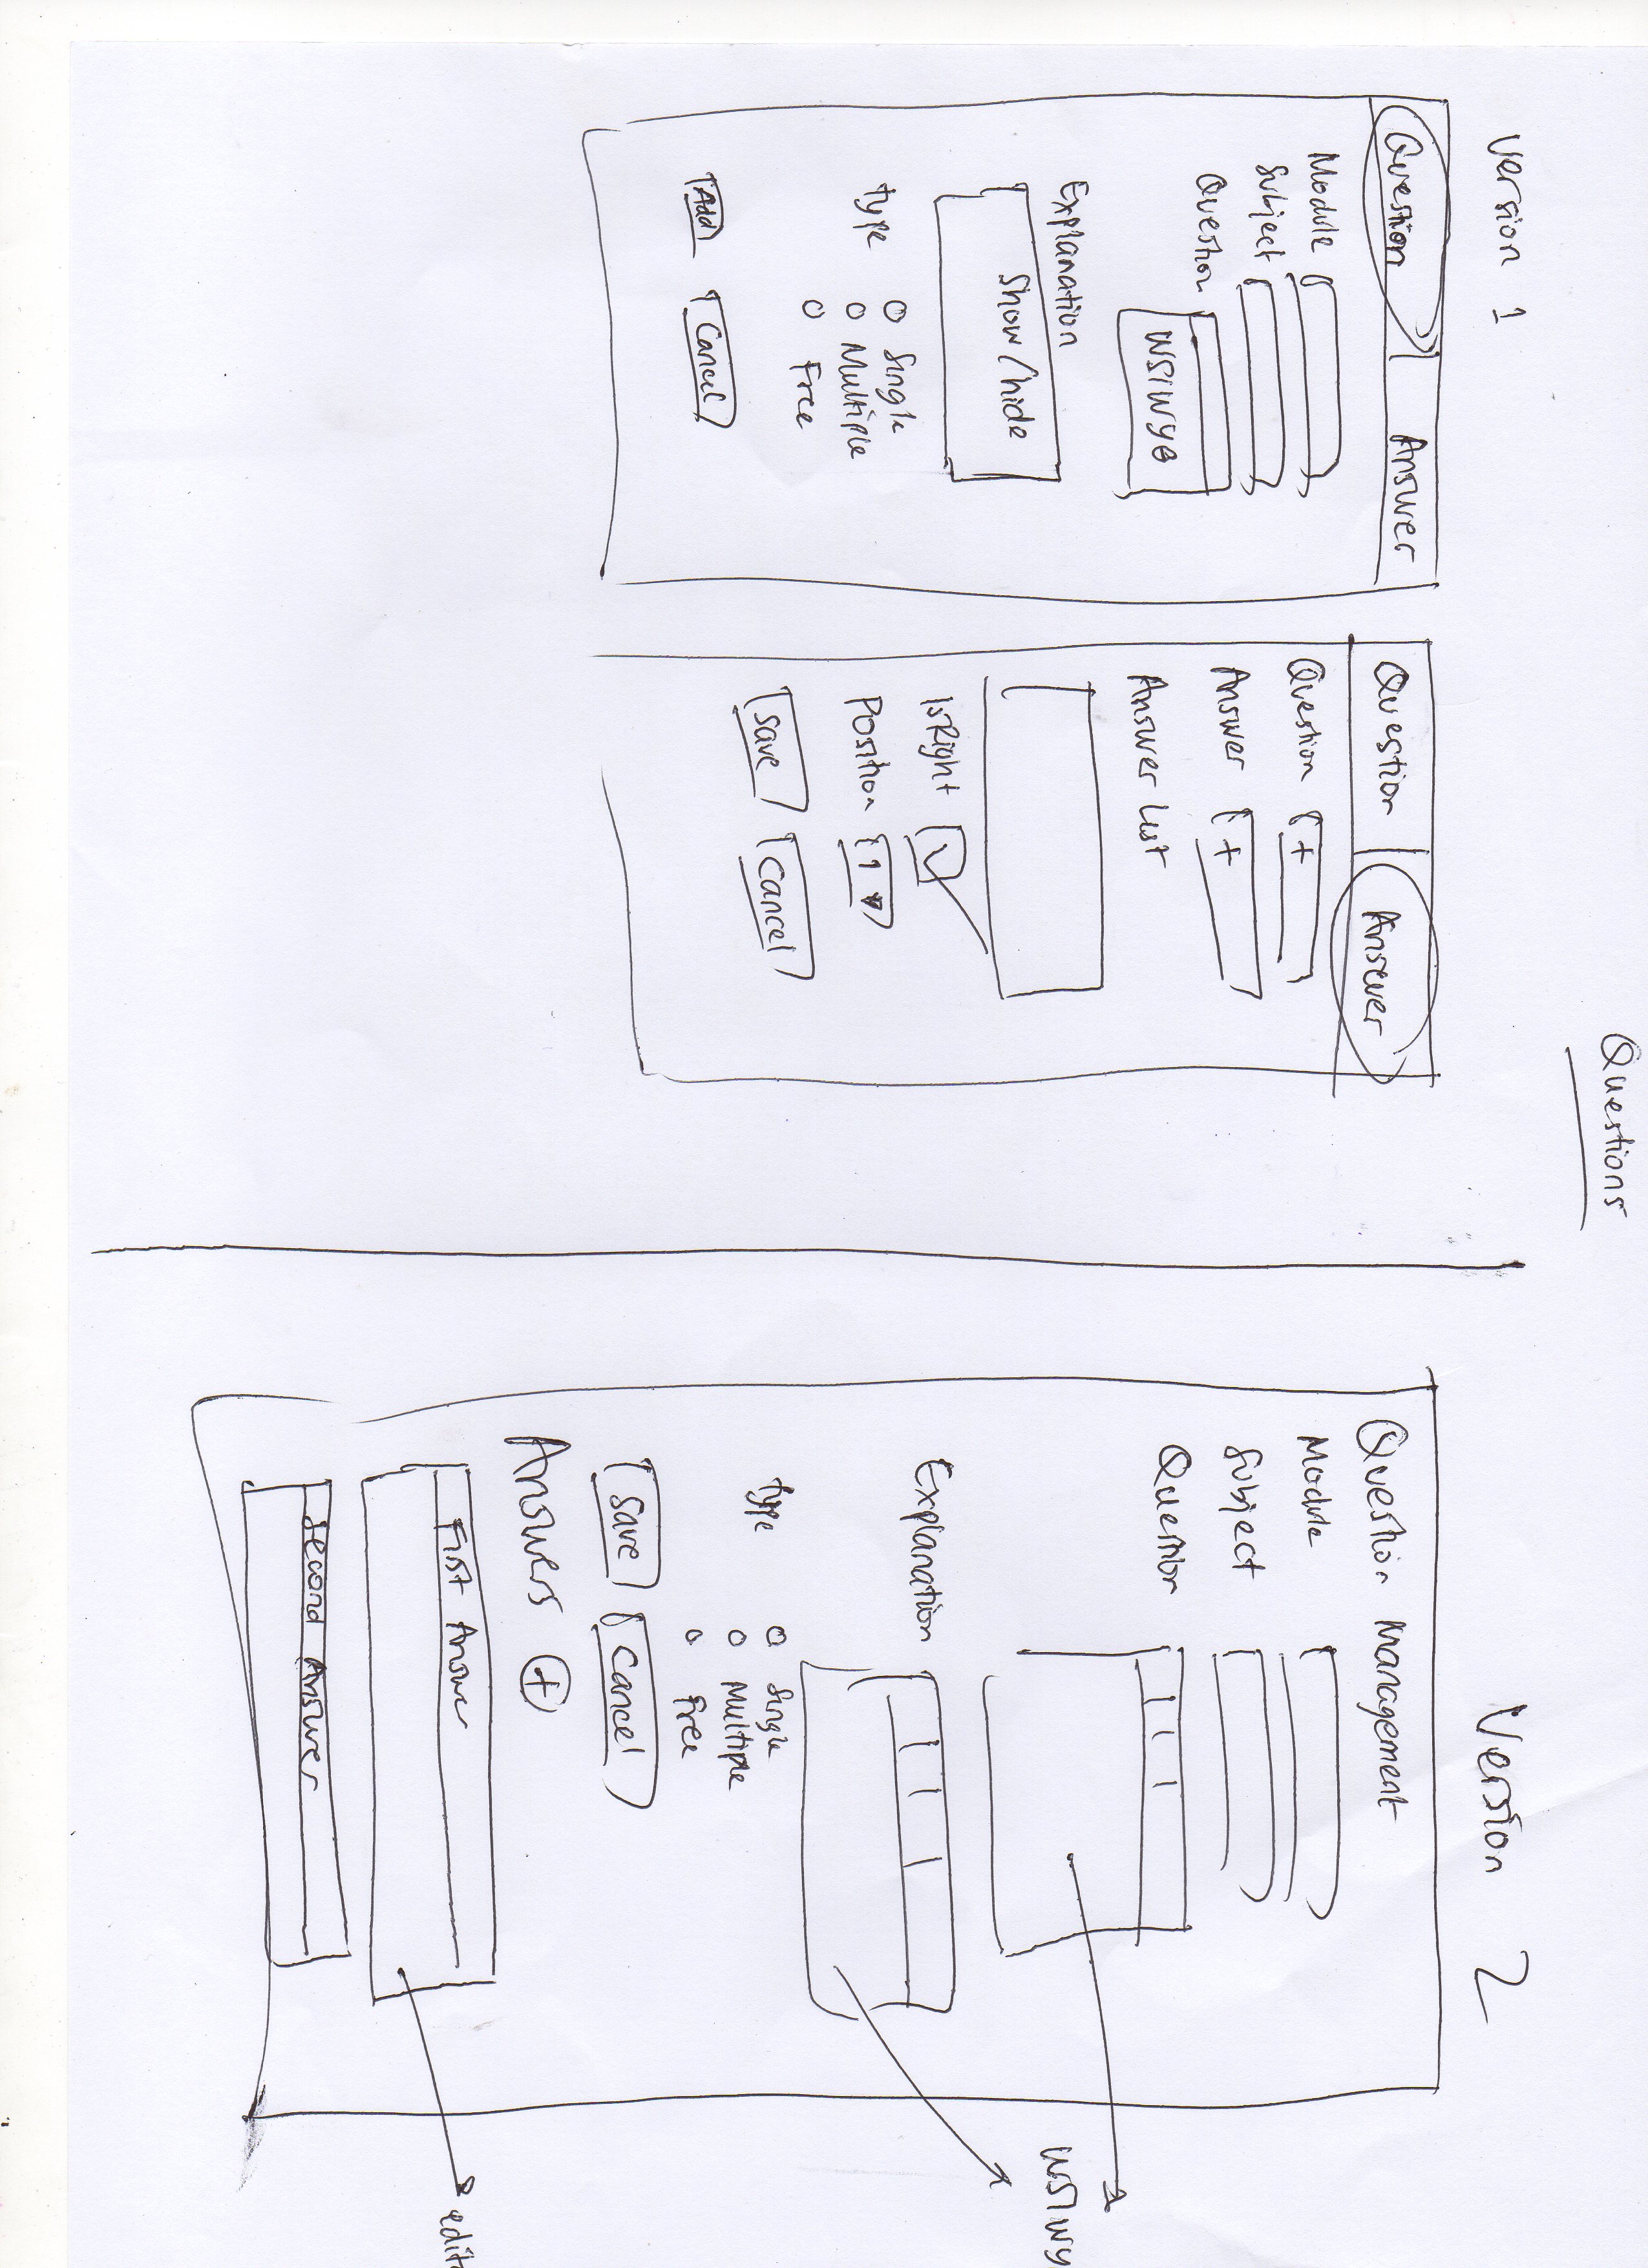 Questions
Version 1
Question Answer
Module
Subject
Question
WSIWYG
Explanation
Show/hide
type
Single
Multiple
Free
Add Cancel
Question Answer
Question +
Answer +
Answer List
IsRight
Position 1
Save Cancel
Version 2
Question Management
Module
Subject
Question
WSIWY
Explanation
type
Single
Multiple
Free
Save Cancel
Answers +
First Answer
edit
Second Answer